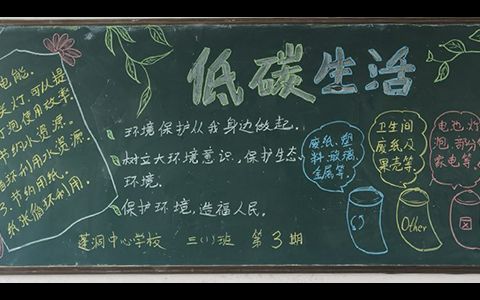 低碳生活
电能。
灯,可以是
使用效率
节约水资源。
循环利用水资源。
3.节约用纸。
纸张循环利用。
环境保护从我身边做起。
树立大环境意识,保护生态
环境。
保护环境,造福人民。
莲洞中心学校 三(1)班 第3期
废纸、塑
料、玻璃、
金属等。
卫生间
废纸及
果壳等。
电池、灯
泡、部分
家电等。
Other